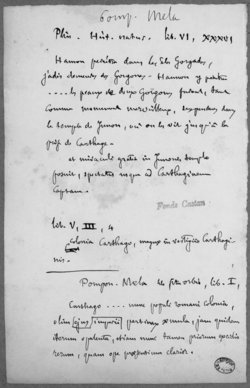 Pomp. Mela
Plin. Hist. natur. lib. VI, XXXVI
Hannon pénétra dans les îles Gorgades,
jadis demeures des Gorgones. Hannon y pénétra
.... les peaux de deux Gorgones furent, tant
comme monument merveilleux, suspendues dans
le temple de Junon, où on les vit jusqu'à la
prise de Carthage.
et miraculi gratia in Junonis templo
posuit, spectatas usque ad Carthaginem
captam.
Fonds Castan
lib. V, III, 4
Colonia Carthago, magnae in vestigiis Carthagi-
nis.
Pompon. Mela de situ orbis, lib. I,
Carthago .... nunc populi romani colonia,
olim ejus imperii pertinax aemula, jam quidem
iterum opulenta, etiam nunc tamen priorum excidio
rerum, quam ope praesentium clarior.